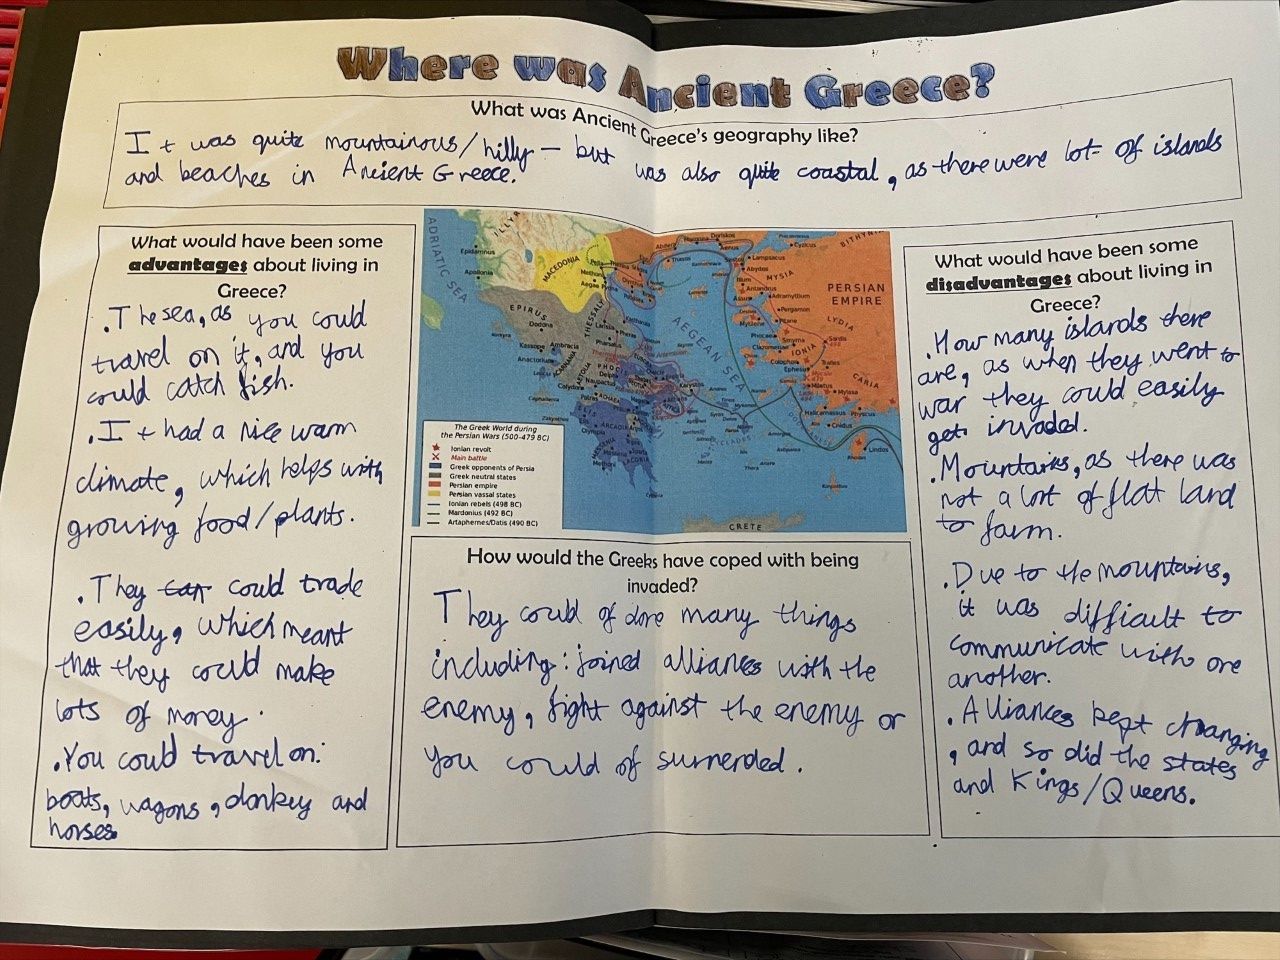 Where was Ancient Greece?
What was Ancient Greece's geography like?
It was quite mountainous/hilly – but was also quite coastal, as there were lots of islands
and beaches in Ancient Greece.
What would have been some
advantages about living in
Greece?
. The sea, as you could
travel on it, and you
could catch fish.
. It had a nice warm
climate, which helps with
growing food/plants.
. They can could trade
easily, which meant
that they could make
lots of money.
. You could travel on:
boats, wagons, donkey and
horses
ADRIATIC SEA
ILLYR
Epidamnus
Apollonia
MACEDONIA
Pella
Methone
Aegae
EPIRUS
Dodona
THESSALY
Larissa
Kassope
Ambracia
Anactorium
ACARNANIA
Calydon
Naupactus
Delphi
ELIS
Olympia
ARCADIA
MESSENIA
Methoni
LACONIA
AEGEAN SEA
Abdera
Maroneia
Doriskos
Aenus
Thasos
Cyzicus
BITHYNIA
Lampsacus
Abydos
MYSIA
Ilium
Antandrus
Adramyttium
Assus
Pergamon
PERSIAN
EMPIRE
Mytilene
Pitane
LYDIA
Phocaea
Smyrna
Sardis
Clazomenae
IONIA
Colophon
Ephesus
Tralles
Miletus
Mylasa
CARIA
Halicarnassus
Physcus
Cnidus
Lindos
Karystos
CYCLADES
CRETE
The Greek World during
the Persian Wars (500–479 BC)
Ionian revolt
Main battle
Greek opponents of Persia
Greek neutral states
Persian empire
Persian vassal states
Ionian rebels (498 BC)
Mardonius (492 BC)
Artaphernes/Datis (490 BC)
How would the Greeks have coped with being
invaded?
They could of done many things
including: joined alliances with the
enemy, fight against the enemy or
you could of surrended.
What would have been some
disadvantages about living in
Greece?
. How many islands there
are, as when they went to
war they could easily
get invaded.
. Mountains, as there was
not a lort of flat land
to farm.
. Due to the mountains,
it was difficult to
communicate with one
another.
. Alliances kept changing
, and so did the states
and Kings/Queens.